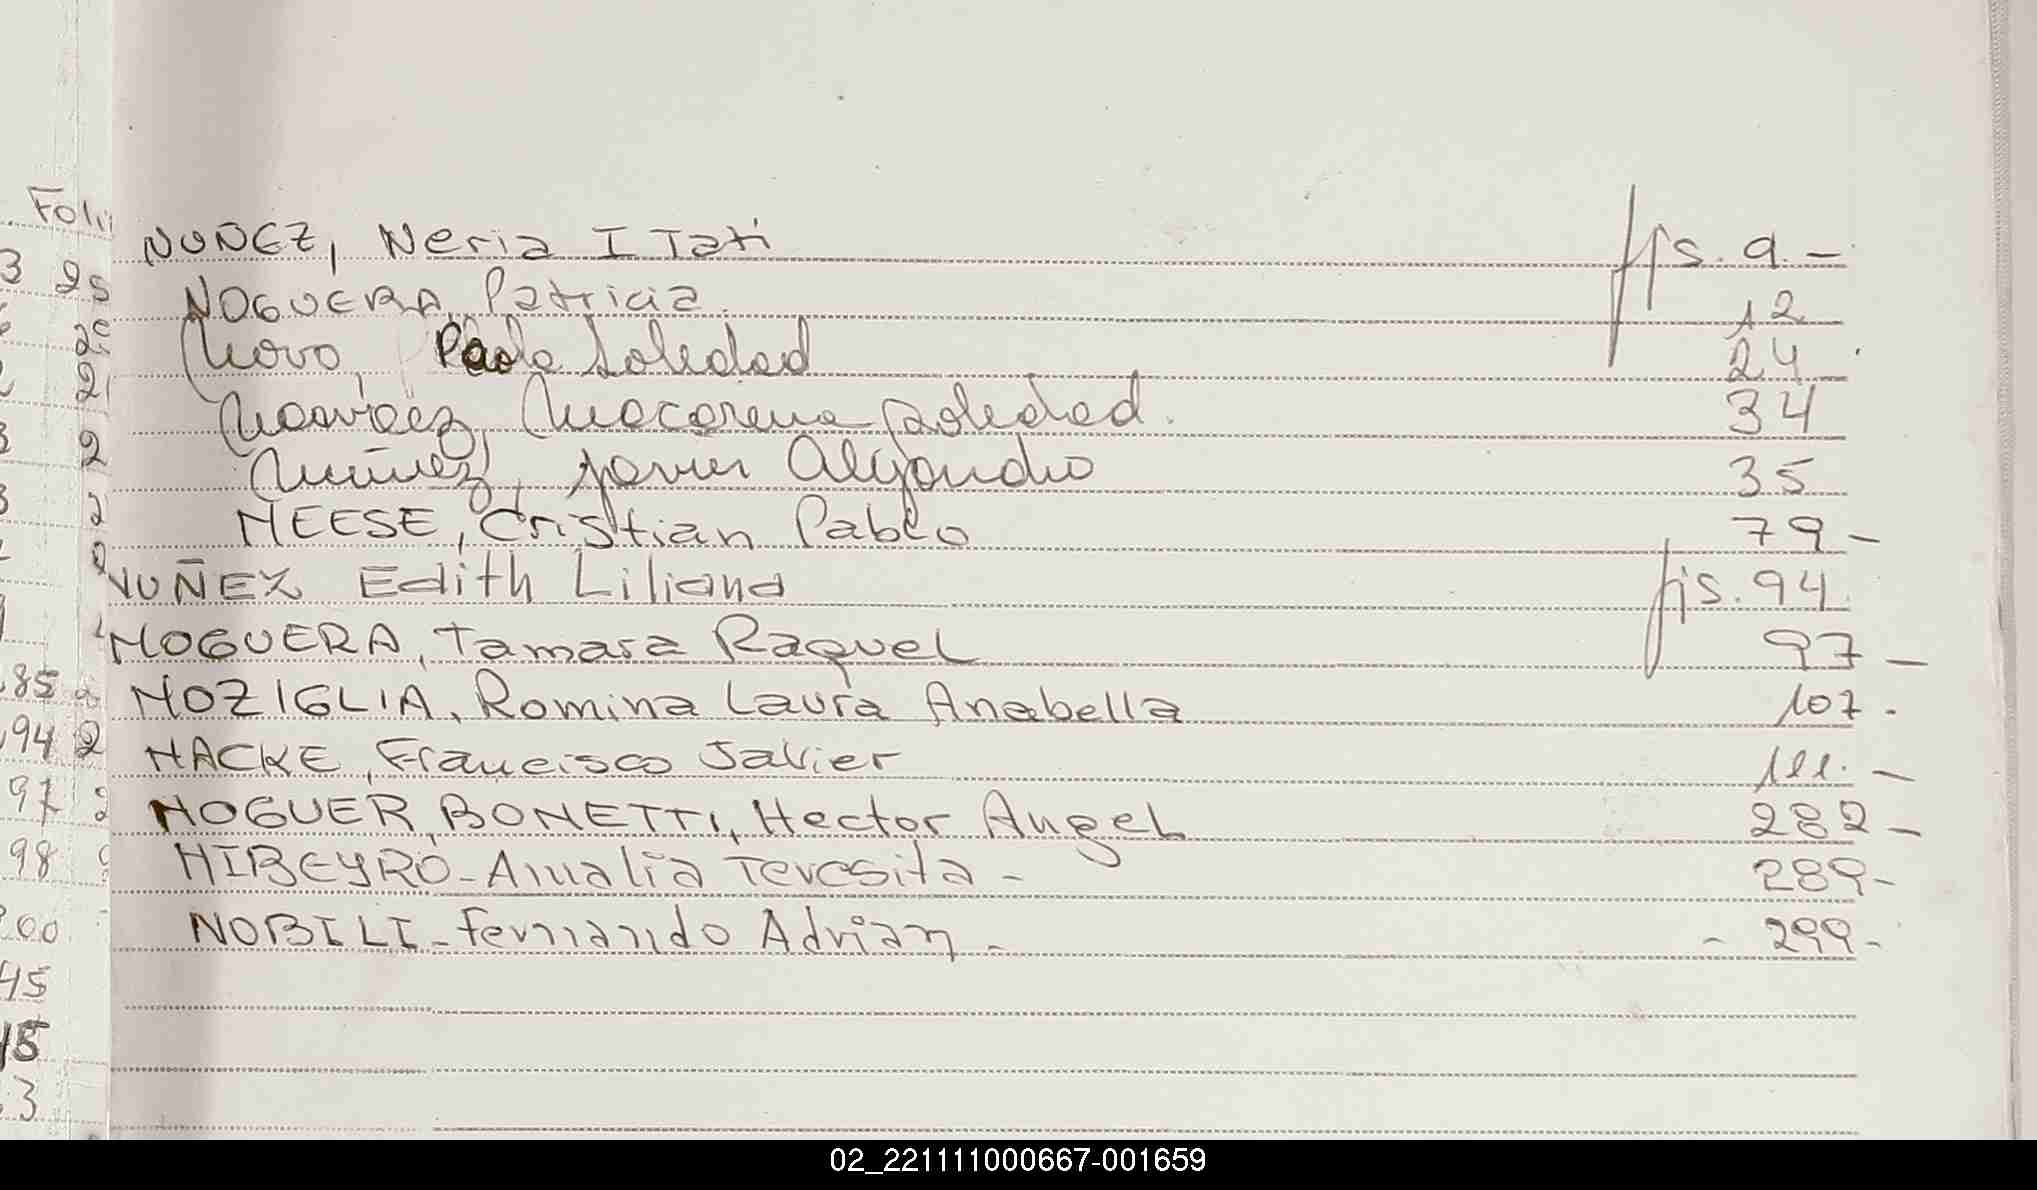 Foli
NUÑEZ, Neria ITati fjs. 9.-
NOGUERA, Patricia 12
Novo, Paola Soledad 24
Narvaez, Macarena Soledad. 34
Nuñez, Javier Alejandro 35
NEESE, Cristian Pablo 79-
NUÑEZ Edith Liliana fjs. 94.
NOGUERA, Tamara Raquel 97-
NOZIGLIA, Romina Laura Anabella 107.
NACKE, Francisco Javier 111.-
NOGUER, BONETTI, Hector Angel 282-
NIBEYRO-Amalia Teresita- 289-
NOBILI-Fernando Adrian- -299-
02_221111000667-001659